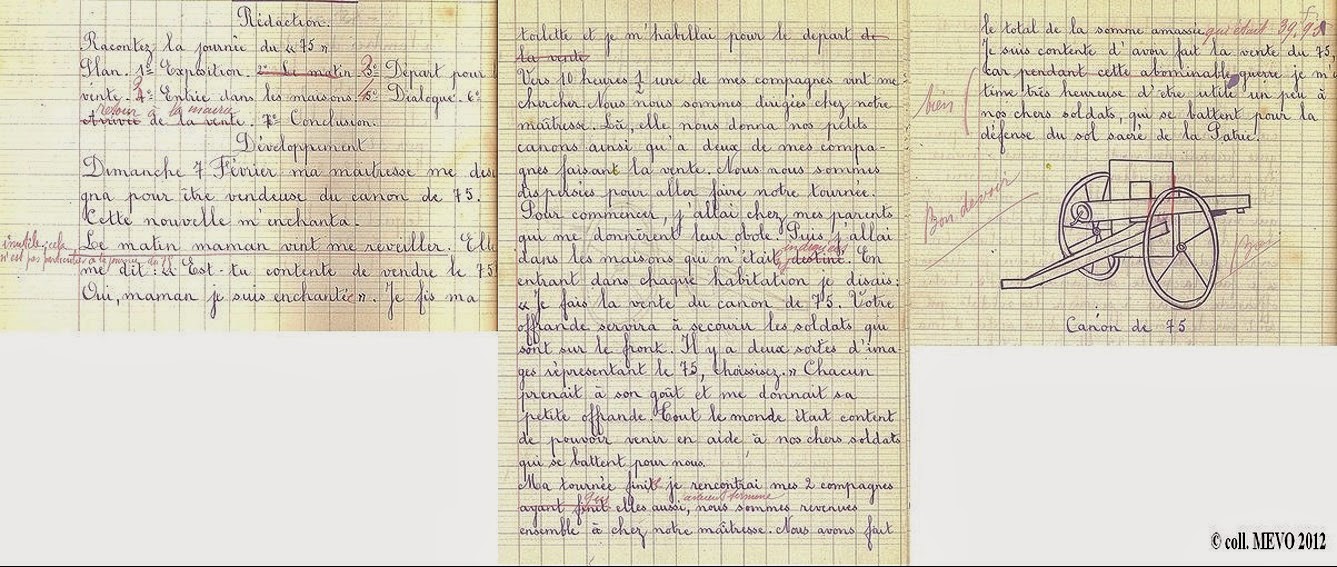 Rédaction.
Racontez la journée du « 75 »
Plan. 1º Exposition. 2º Le matin 3º Départ pour l
vente. 4º Entrée dans les maisons. 5º Dialogue. 6º
retour à la mairie
Arrivée de la vente. 7º Conclusion.
Développement
Dimanche 7 Février ma maîtresse me dési
gna pour être vendeuse du canon de 75.
Cette nouvelle m'enchanta.
inutile; cela
Le matin maman vint me reveiller. Elle
n'est pas particulier à la journée du 75
me dit: « Est-tu contente de vendre le 75
Oui, maman je suis enchantée ». Je fis ma
toilette et je m'habillai pour le depart de
la vente
Vers 10 heures ½ une de mes compagnes vint me
chercher. Nous nous sommes dirigées chez notre
maîtresse. Là, elle, nous donna nos petits
canons ainsi qu'à deux de mes compa-
gnes faisant la vente. Nous nous sommes
dispersées pour aller faire notre tournée.
Pour commencer, j'allai chez mes parents
qui me donnèrent leur obole. Puis j'allai
dans les maisons qui m'était destiné. En
entrant dans chaque habitation je disais:
« Je fais la vente du canon de 75. Votre
offrande servira à secourir les soldats qui
sont sur le front. Il y a deux sortes d'ima
ges représentant le 75, choissisez.» Chacun
prenait à son goût et me donnait sa
petite offrande. Tout le monde était content
de pouvoir venir en aide à nos chers soldats
qui se battent pour nous.
Ma tournée finit je rencontrai mes 2 compagnes
qui avaient terminé
ayant finit elles aussi, nous sommes revenues
ensemble à chez notre maîtresse. Nous avons fait
le total de la somme amassée qui était 39,95
Je suis contente d'avoir fait la vente du 75,
car pendant cette abominable guerre je m'es
time très heureuse d'être utile un peu à
bien
nos chers soldats, qui se battent pour la
défense du sol sacré de la Patrie.
Bon devoir
Canon de 75
© coll. MEVO 2012